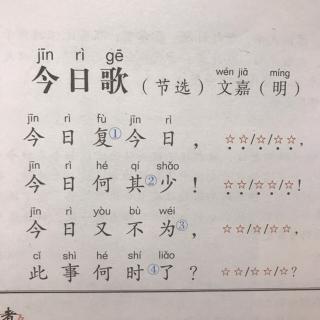 jīn rì gē
今日歌（节选） wén jiā míng 文嘉（明）
jīn rì fù jīn rì
今日复①今日，☆☆/☆/☆☆，
jīn rì hé qí shǎo
今日何其②少！☆☆/☆☆/☆！
jīn rì yòu bù wéi
今日又不为③，☆☆/☆/☆☆，
cǐ shì hé shí liǎo
此事何时④了？☆☆/☆☆/☆？
者